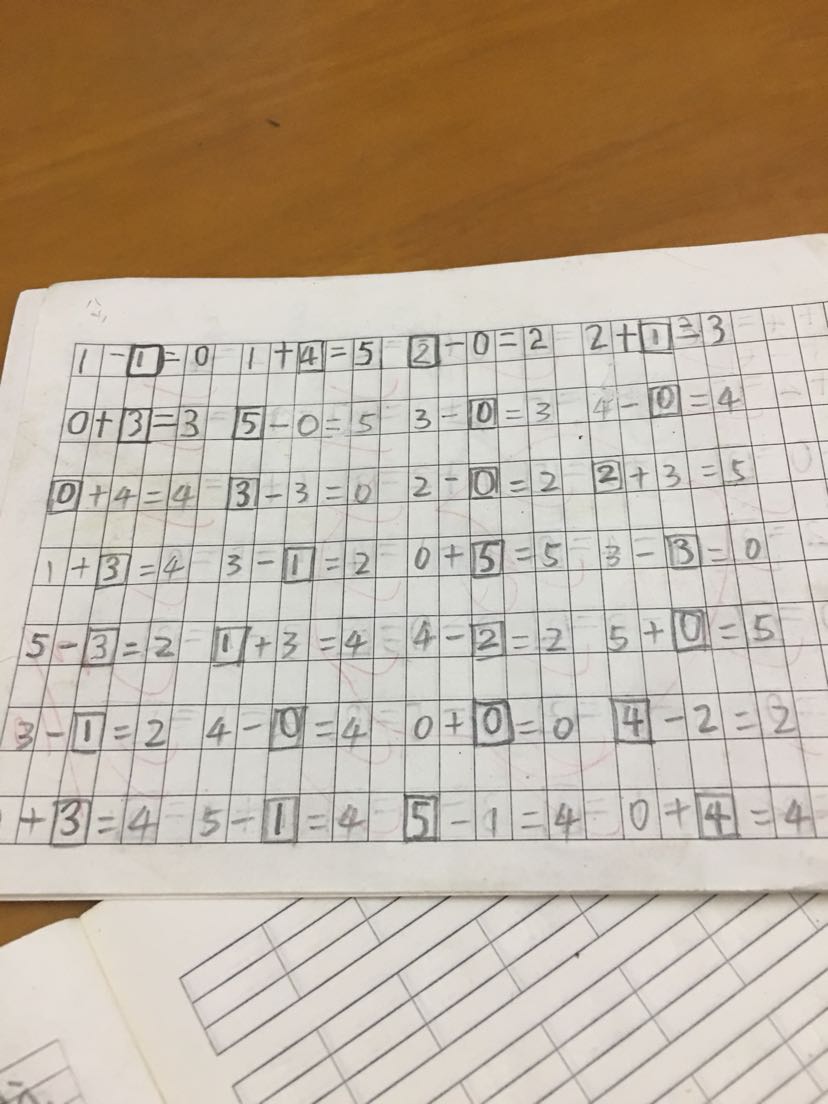 1-1=0 1+4=5 2-0=2 2+1=3
0+3=3 5-0=5 3-0=3 4-0=4
0+4=4 3-3=0 2-0=2 2+3=5
1+3=4 3-1=2 0+5=5 3-3=0
5-3=2 1+3=4 4-2=2 5+0=5
3-1=2 4-0=4 0+0=0 4-2=2
+3=4 5-1=4 5-1=4 0+4=4